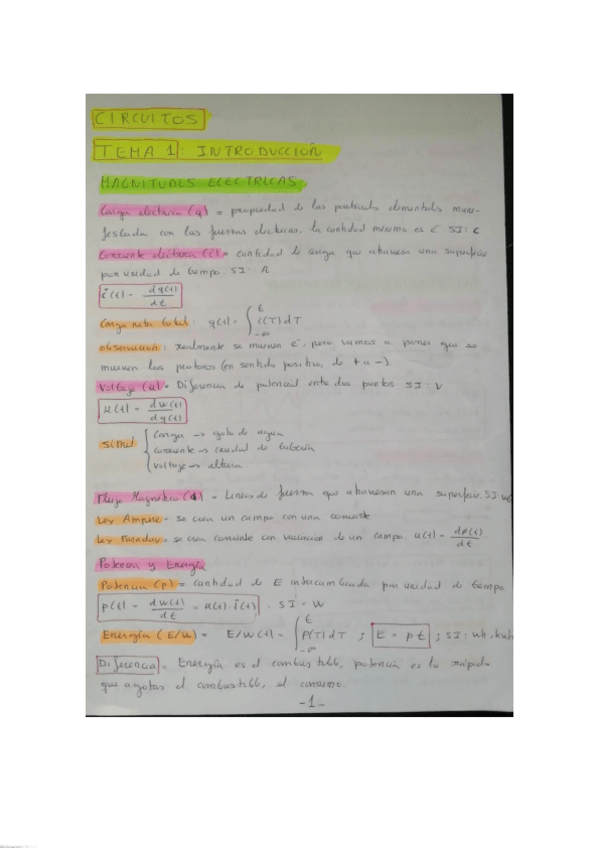 CIRCUITOS
TEMA 1: INTRODUCCIÓN
MAGNITUDS ELECTRICAS.
Carga electrica (q) = propiedad de las particulas elementales mani-
festada con las fuerzas electricas, la cantidad minima es é SI: C
Corriente electrica (i) = cantidad de carga que atraviesa una superficie
por unidad de tiempo. SI: A
i(t) = dq(t)/dt
Carga neta total: q(t) = ∫_{-∞}^{t} i(T) dT
observación: realmente se mueven é, pero vamos a poner que se
mueven los protones (en sentido positivo, de + a -)
Voltaje (u) = Diferencia de potencial entre dos puntos SI: V
u(t) = dw(t)/dq(t)
simil { Carga → gota de agua
corriente → caudal de tubería
voltaje → altura
Flujo Magnético (ϕ) = Lineas de fuerza que atraviesan una superficie. SI: wb
Ley Ampere - se crea un campo con una corriente
Ley Faraday - se crea corriente con variación de un campo. u(t) = dϕ(t)/dt
Potencia y Energía
Potencia (p) = cantidad de E intercambiada por unidad de tiempo
p(t) = dw(t)/dt = u(t) · i(t) . SI = W
Energía (E/W) = E/W(t) = ∫_{-∞}^{t} P(T) dT ; E = p·t ; SI: wh, kwh
Diferencia - Energía es el combustible, potencia es lo rápido
que agotas el combustible, el consumo.
-1-